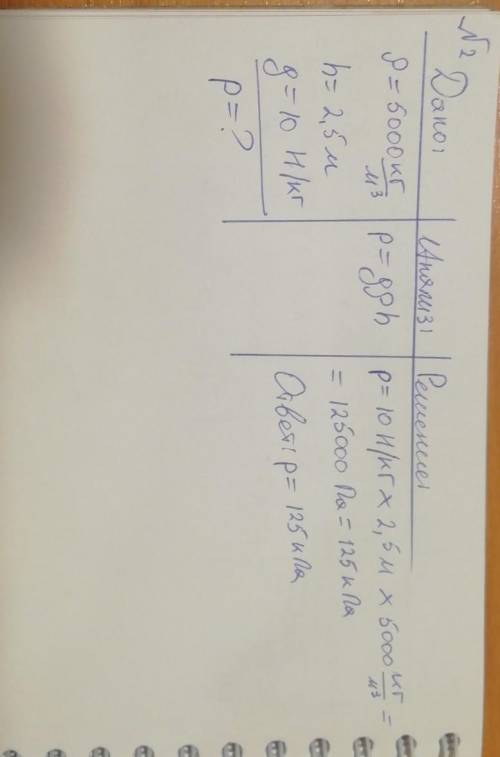 №2
Дано:
ρ = 5000 кг/м³
h = 2,5 м
g = 10 Н/кг
p = ?
Анализ:
p = gρh
Решение:
p = 10 Н/кг × 2,5 м × 5000 кг/м³ =
= 125000 Па = 125 кПа
Ответ: p = 125 кПа